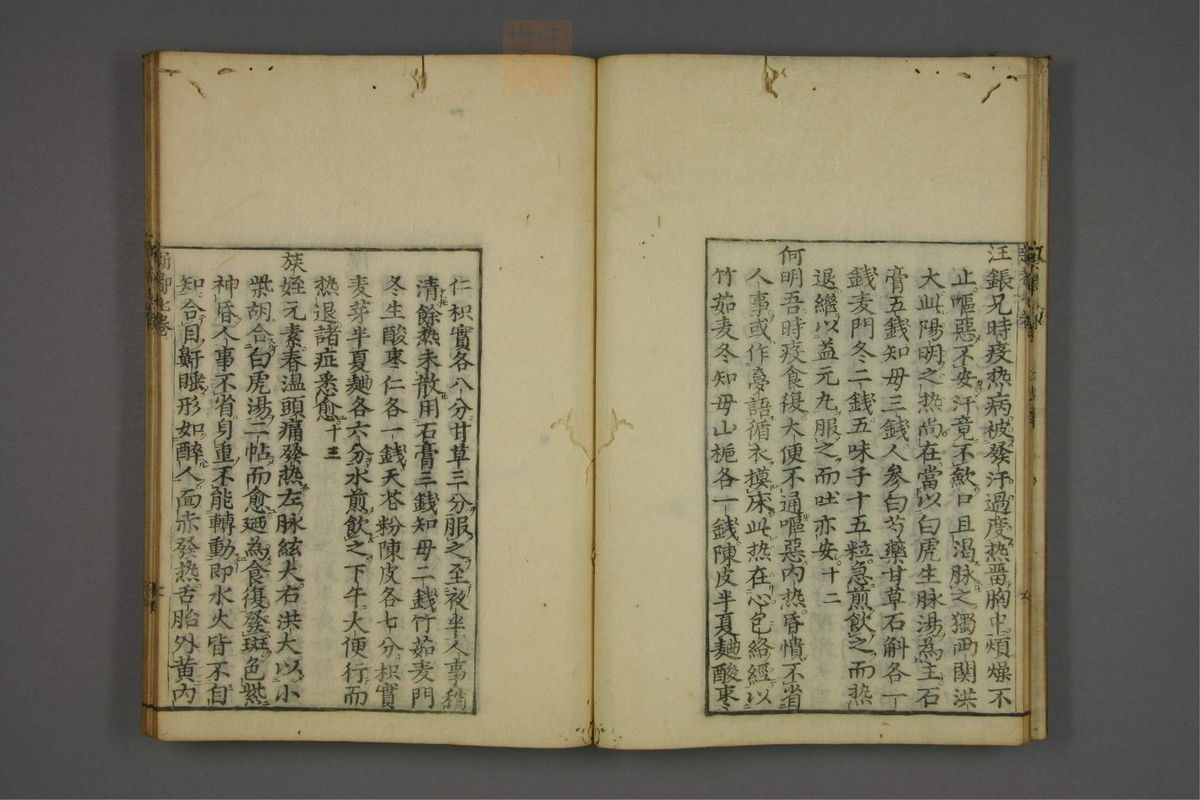 汪鋹兄時疫热病被發汗過度热畱胸中煩燥不
止嘔惡不安汗竟不歛口且渴脉之獨両関洪
大此陽明之热尚在當以白虎生脉湯為主石
膏五錢知母三錢人参白芍藥甘草石斛各一
錢麦門冬二錢五味子十五粒急煎飲之而热
退繼以益元丸服之而吐亦安十二
何明吾時疫食復大便不通嘔惡内热昏憒不省
人事或作憂語循衣摸床此热在心包絡經以
竹茹麦冬知母山栀各一錢陳皮半夏麯酸枣
仁枳實各八分甘草三分服之至夜半人事稍
清餘热未散用石膏三錢知母二錢竹茹麦門
冬生酸枣仁各一錢天花粉陳皮各七分枳實
麦芽半夏麯各六分水煎飲之下午大便行而
热退諸症悉愈十三
族姪元素春温頭痛發热左脉絃大右洪大以小
柴胡合白虎湯二帖而愈廼為食復發斑色紫
神昏人事不省身重不能轉動即水火皆不自
知合目鼾睡形如醉人面赤發热舌胎外黄内